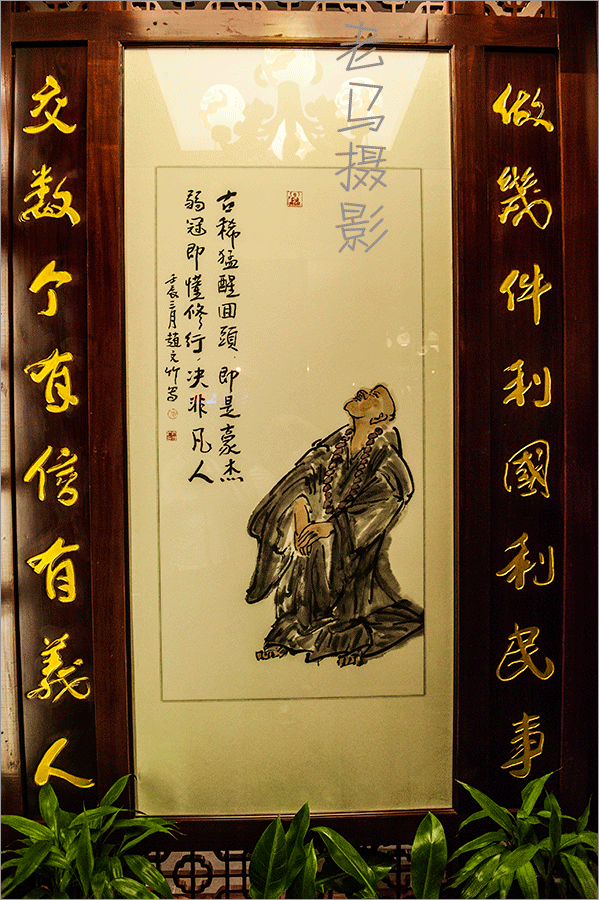 做幾件利國利民事
老马摄影
古稀猛醒回頭，即是豪杰
弱冠即懂修行，决非凡人
壬辰三月趙文竹写
交数个有信有義人